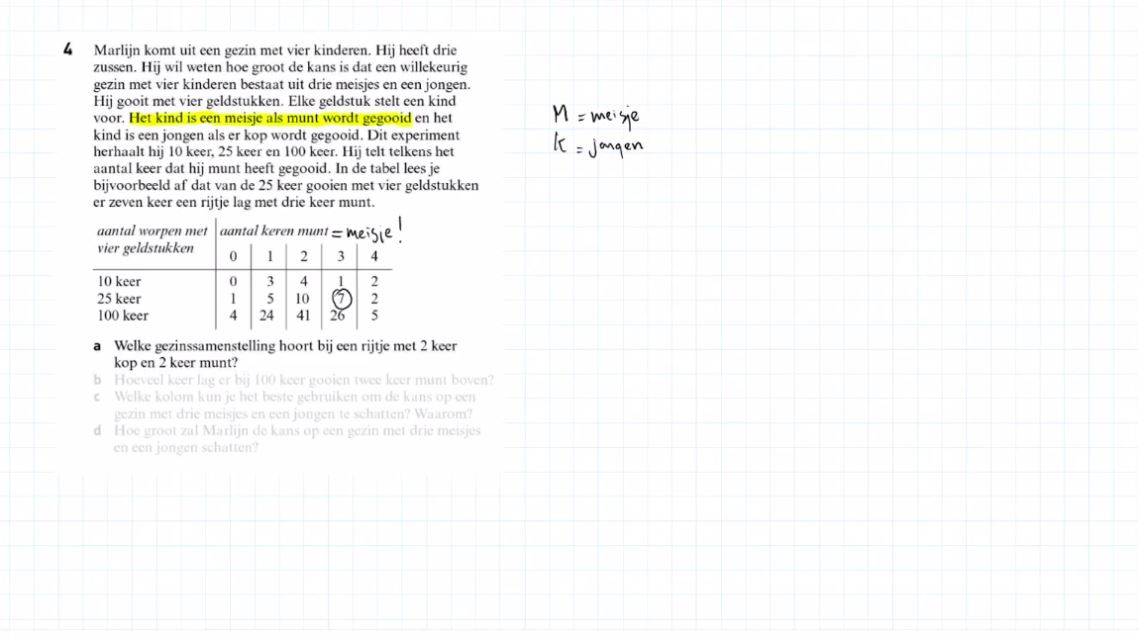 4 Marlijn komt uit een gezin met vier kinderen. Hij heeft drie
zussen. Hij wil weten hoe groot de kans is dat een willekeurig
gezin met vier kinderen bestaat uit drie meisjes en een jongen.
Hij gooit met vier geldstukken. Elke geldstuk stelt een kind
voor. Het kind is een meisje als munt wordt gegooid en het
kind is een jongen als er kop wordt gegooid. Dit experiment
herhaalt hij 10 keer, 25 keer en 100 keer. Hij telt telkens het
aantal keer dat hij munt heeft gegooid. In de tabel lees je
bijvoorbeeld af dat van de 25 keer gooien met vier geldstukken
er zeven keer een rijtje lag met drie keer munt.
aantal worpen met aantal keren munt = meisje!
vier geldstukken 0 1 2 3 4
10 keer 0 3 4 1 2
25 keer 1 5 10 7 2
100 keer 4 24 41 26 5
a Welke gezinssamenstelling hoort bij een rijtje met 2 keer
kop en 2 keer munt?
b Hoeveel keer lag er bij 100 keer gooien twee keer munt boven?
c Welke kolom kun je het beste gebruiken om de kans op een
gezin met drie meisjes en een jongen te schatten? Waarom?
d Hoe groot zal Marlijn de kans op een gezin met drie meisjes
en een jongen schatten?
M = meisje
K = jongen